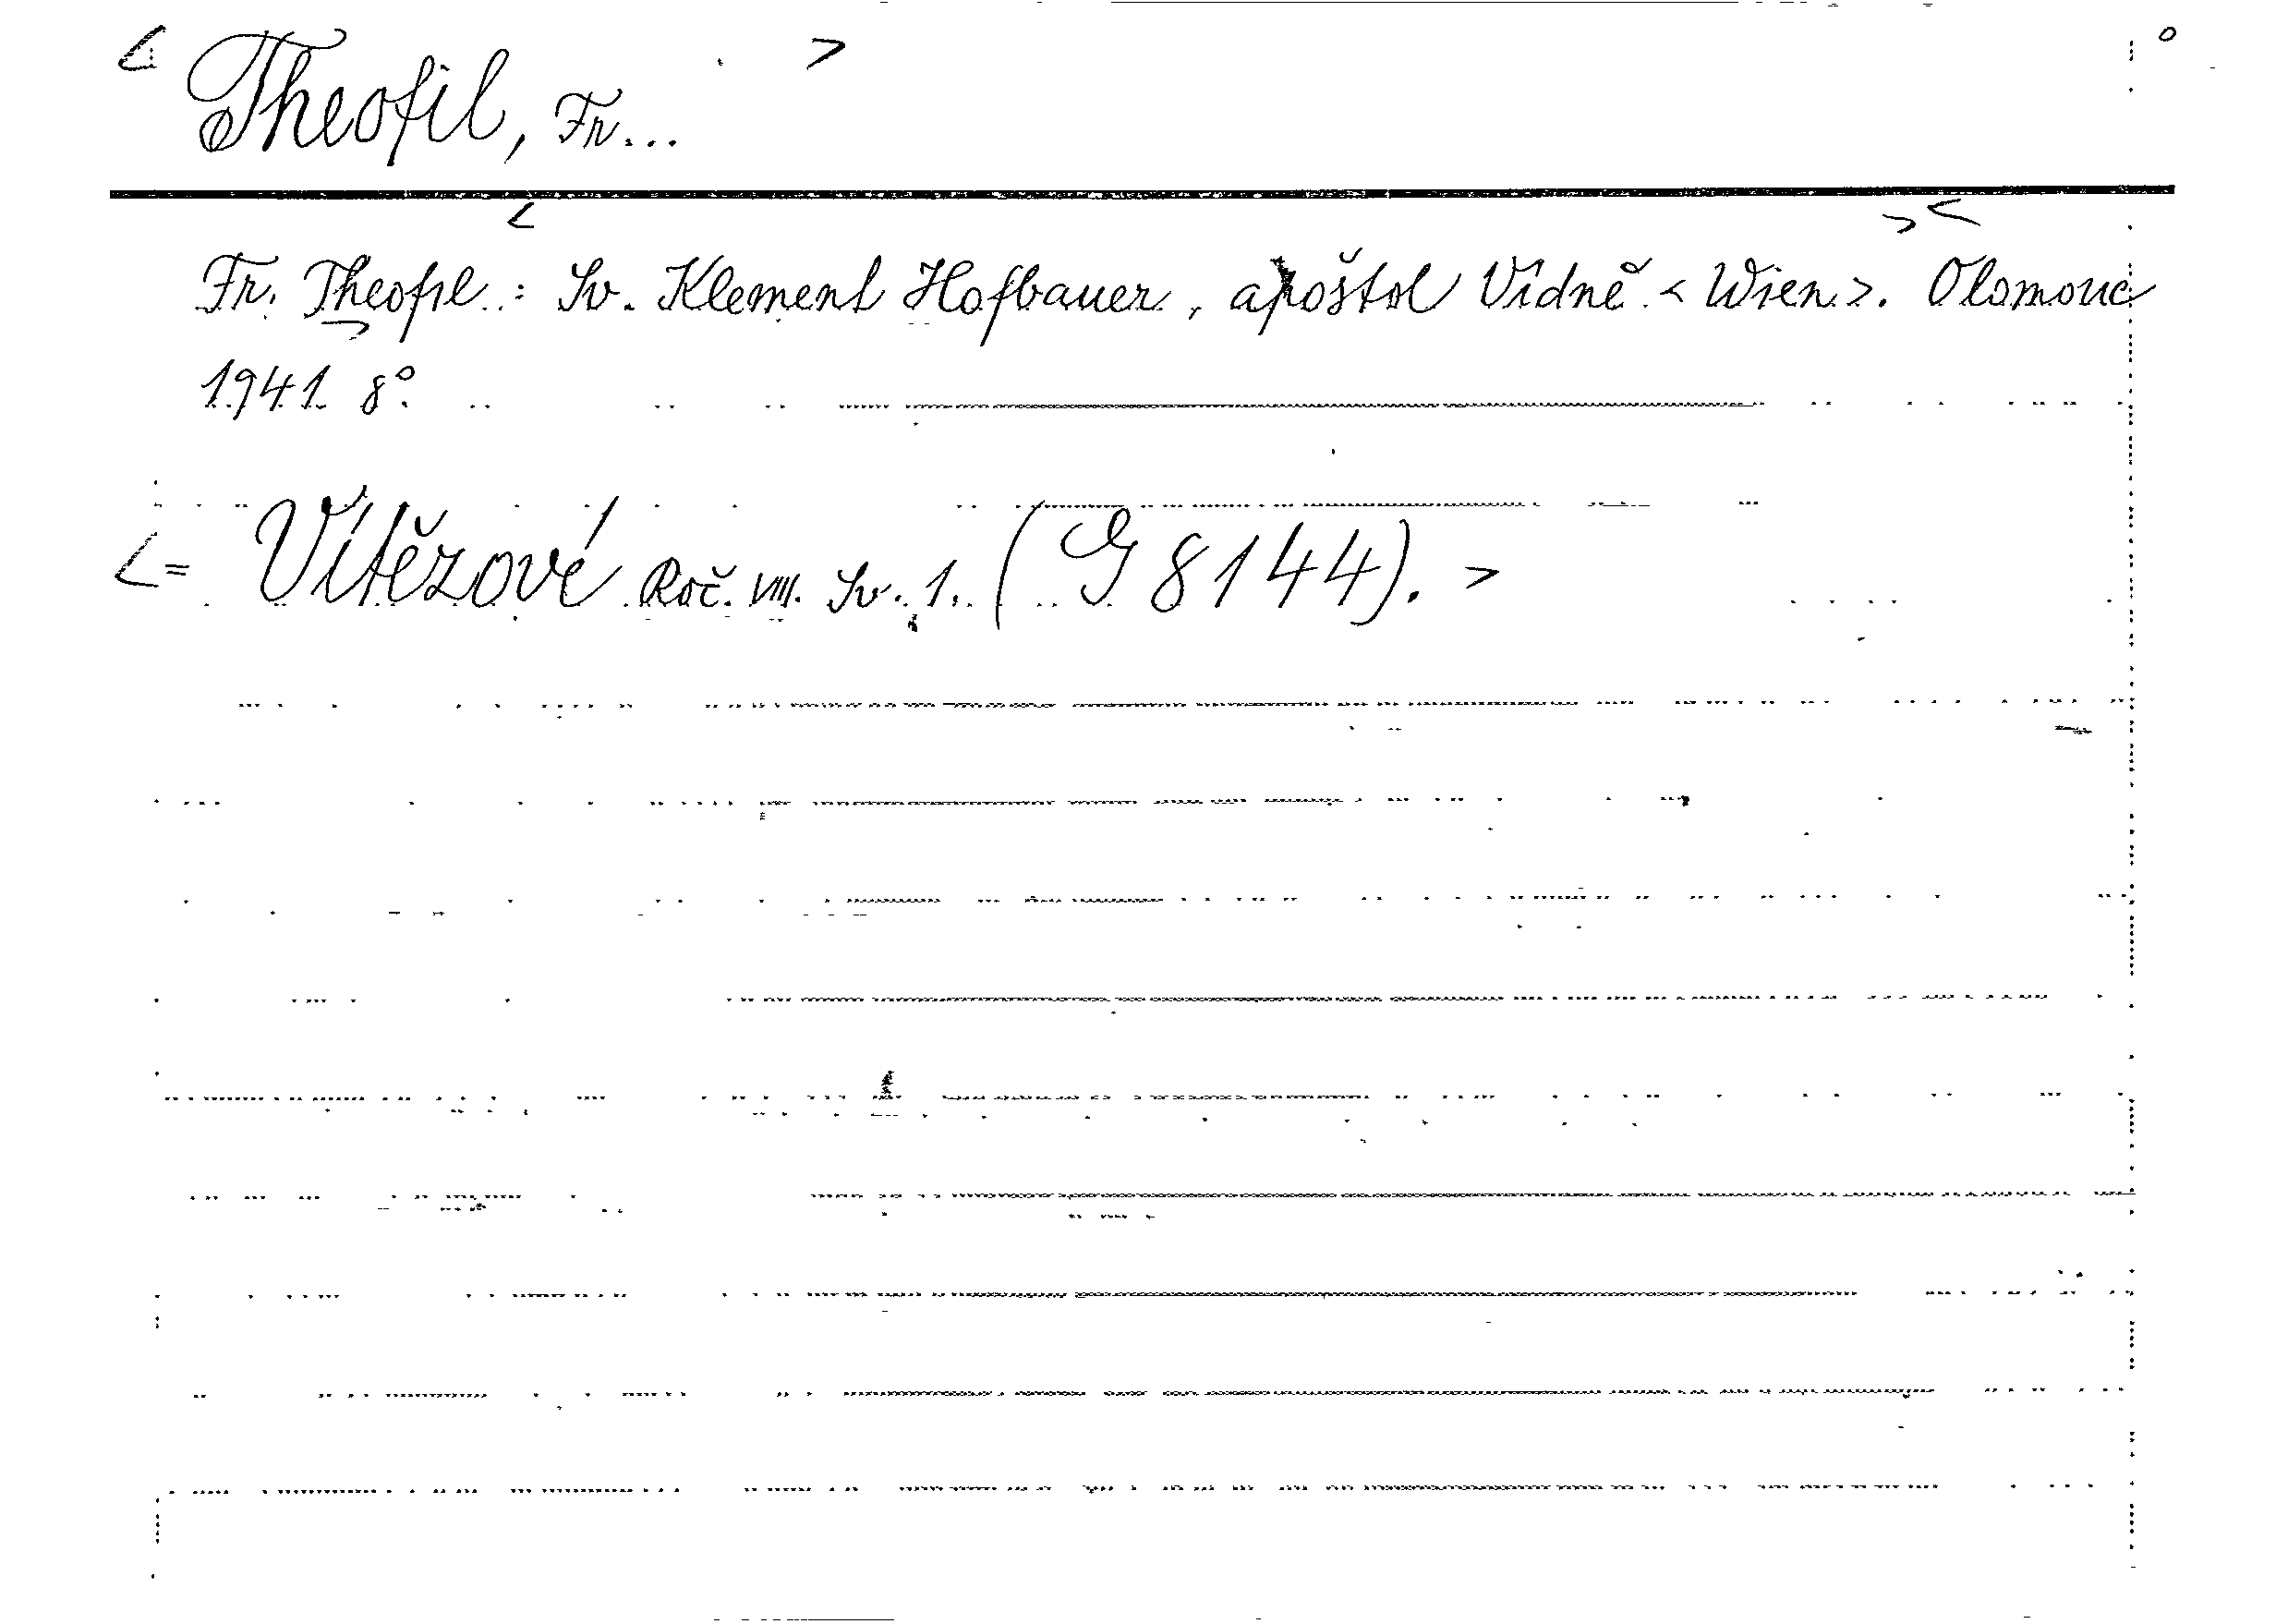 < Theofil, Fr... >
Fr. Theofil: < Sv. Klement Hofbauer, apoštol Vídně < Wien >. > < Olomouc
1941 8°.
< = Vítězové Roč. VIII. Sv. 1. (G 8144). >